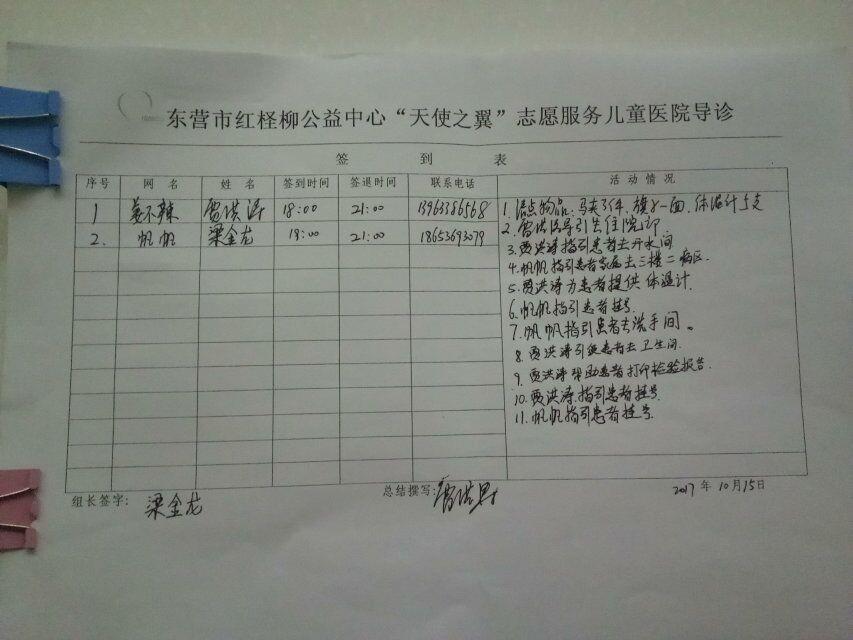 东营市红柽柳公益中心“天使之翼”志愿服务儿童医院导诊
签到表
序号 网名 姓名 签到时间 签退时间 联系电话 活动情况
1 姜不辣 贾洪涛 18:00 21:00 13963386568
2. 帆帆 梁金龙 18:00 21:00 18653693079
1. 清点物品:马夹3件、旗子一面、体温计5支
2. 贾洪涛导引去住院部
3. 贾洪涛指引患者去开水间
4. 帆帆指引患者家属去三楼二病区.
5. 贾洪涛为患者提供体温计.
6. 帆帆指引患者挂号.
7. 帆帆指引患者去洗手间。
8. 贾洪涛引领患者去卫生间.
9. 贾洪涛帮助患者打印检验报告.
10. 贾洪涛指引患者挂号
11. 帆帆指引患者挂号
组长签字: 梁金龙 总结撰写: 2017年10月15日